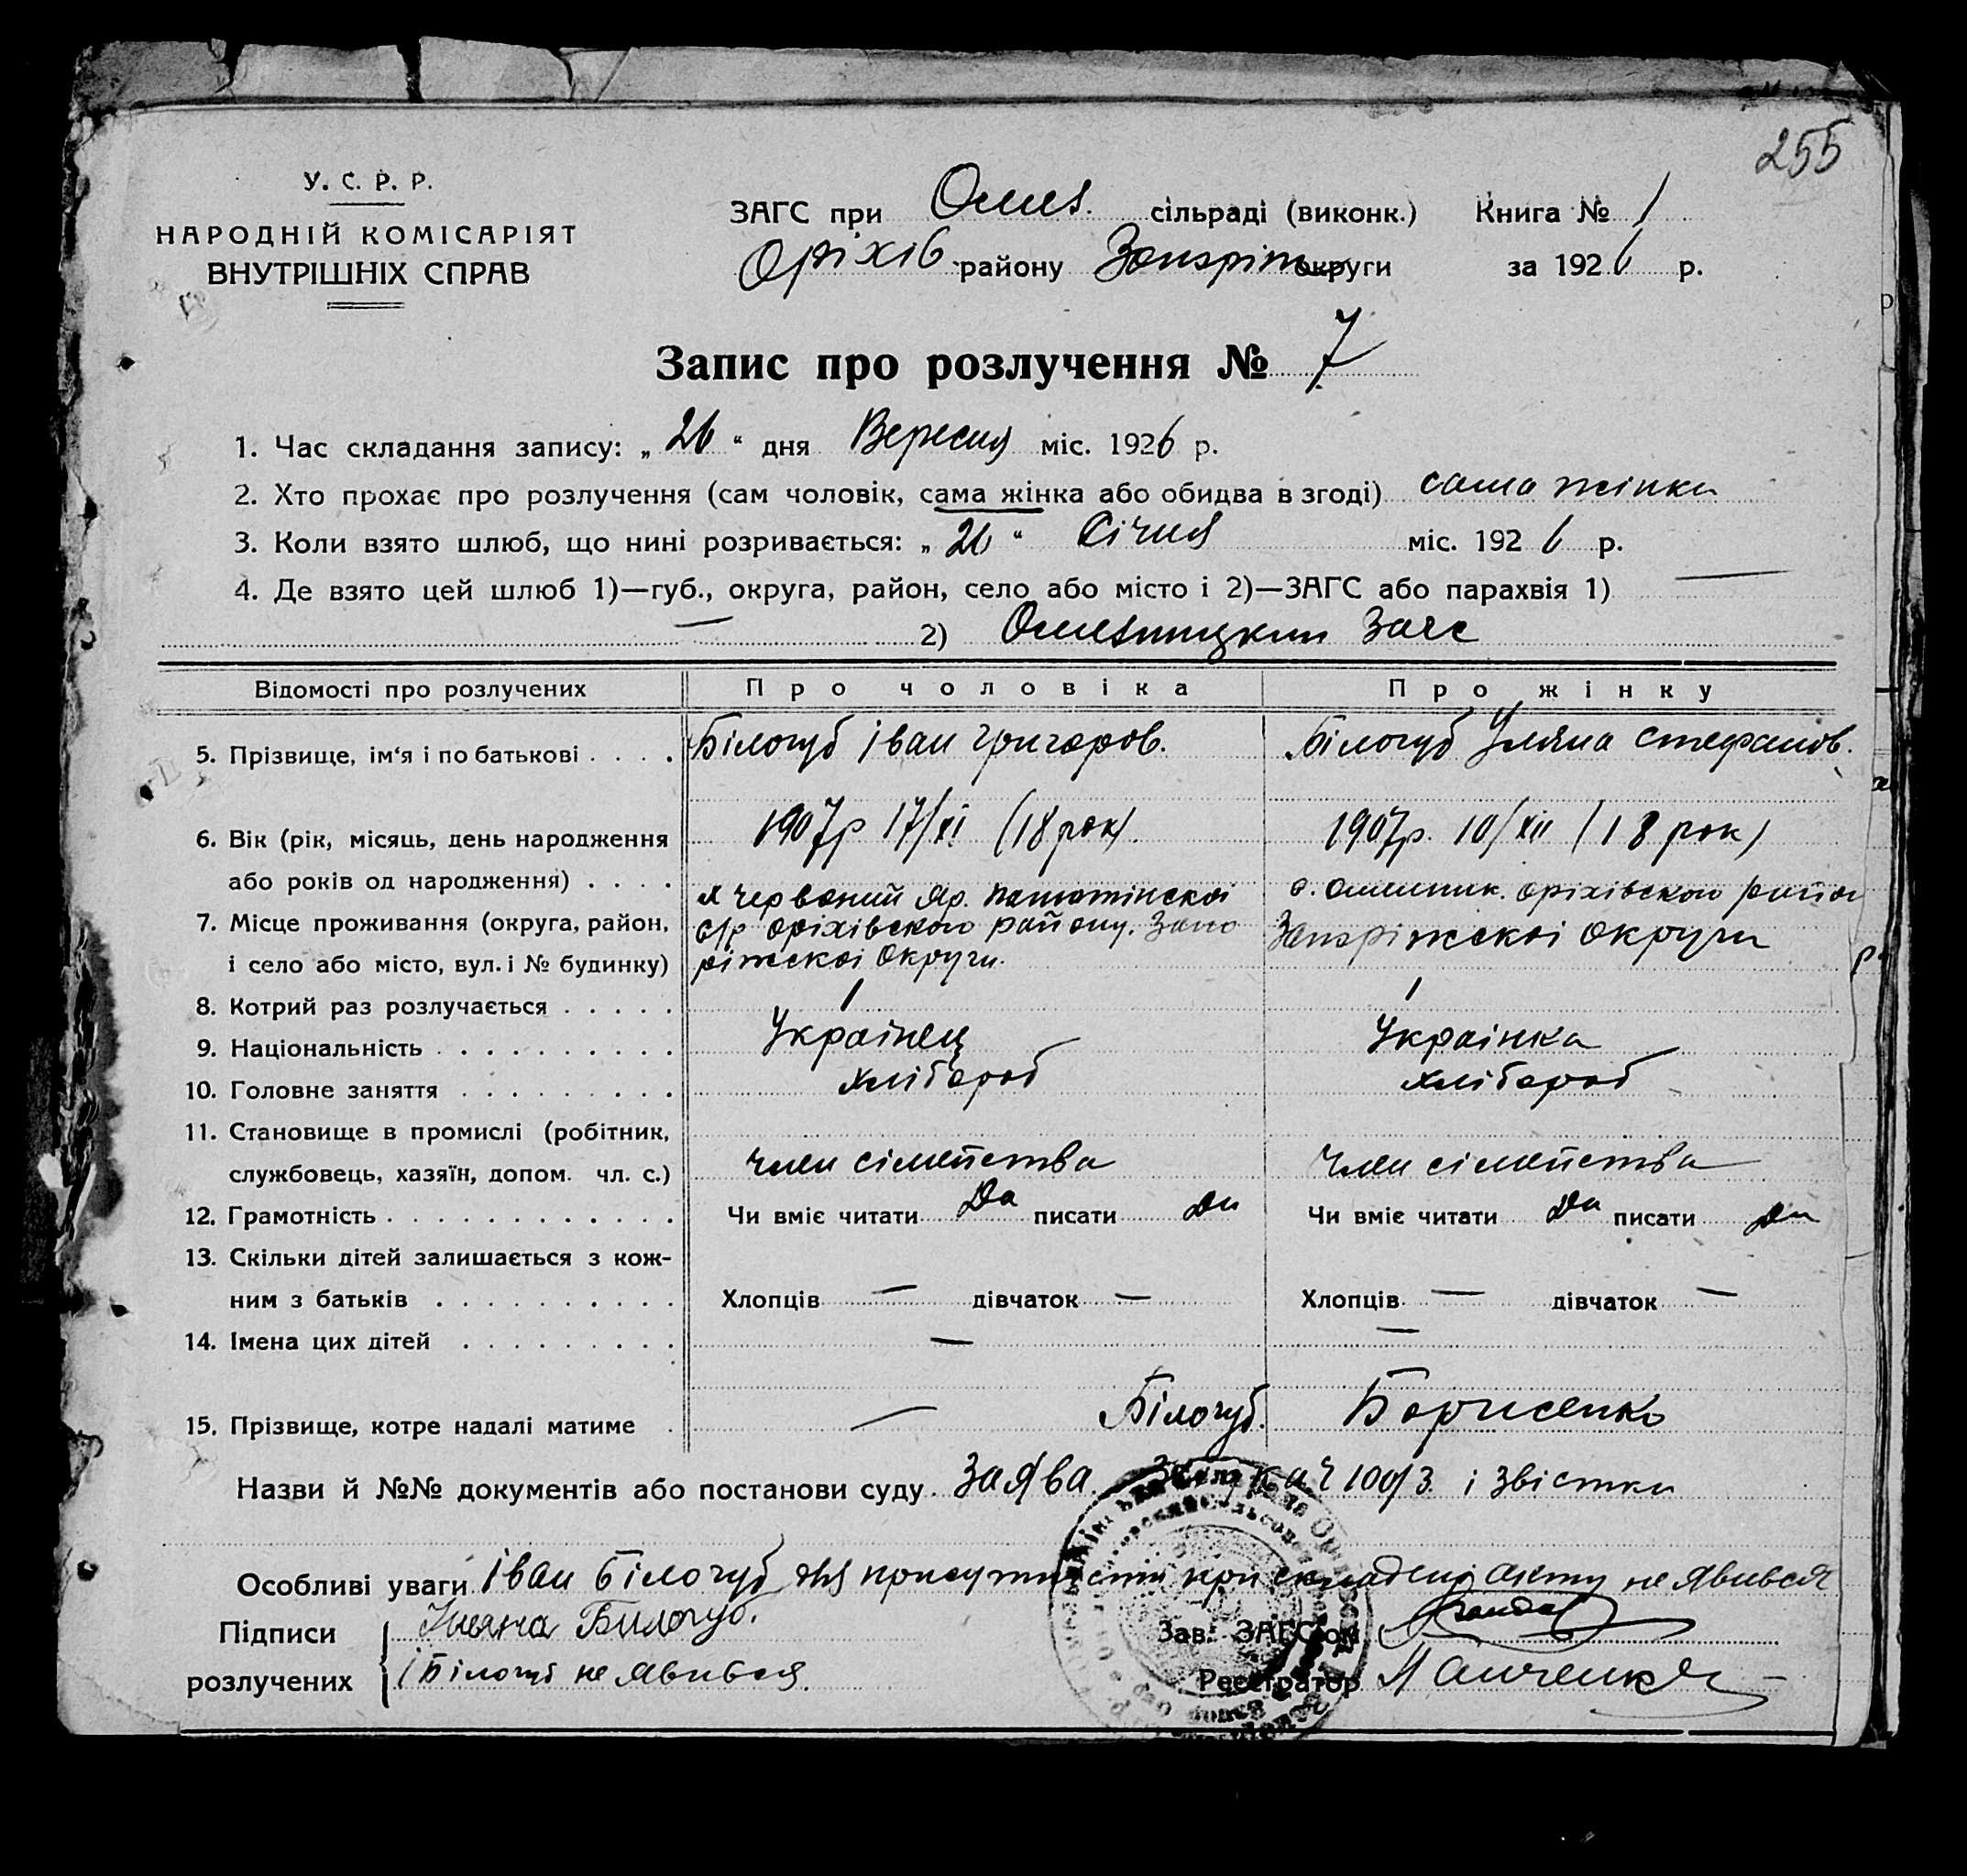 255
У. С. Р. Р.
НАРОДНІЙ КОМІСАРІЯТ
ВНУТРІШНІХ СПРАВ
ЗАГС при сільраді (виконк.) Книга № 1
Оріхів району округи за 1926 р.
Запис про розлучення № 7
1. Час складання запису: „26“ дня Вересня міс. 1926 р.
2. Хто прохає про розлучення (сам чоловік, сама жінка або обидва в згоді) сама жінка
3. Коли взято шлюб, що нині розривається: „26“ Січня міс. 1926 р.
4. Де взято цей шлюб 1)—губ., округа, район, село або місто і 2)—ЗАГС або парахвія 1) —
— 2) Загс
Відомості про розлучених Про чоловіка Про жінку
5. Прізвище, ім‘я і по батькові . . . . Білогуб Іван Григоров. Білогуб Уляна Стефанов.
6. Вік (рік, місяць, день народження 1907р 17/XI (18 рок). 1907р. 10/XII (18 рок)
або років од народження) . . . .
7. Місце проживання (округа, район, х Червоний Яр. оріхівского
с/р оріхівского району. Запо округи
і село або місто, вул. і № будинку) ріжскоі Округи.
8. Котрий раз розлучається . . . . . 1 1
9. Національність . . . . . . . . . . Украінец Украінка
10. Головне заняття . . . . . . . . . хлібороб хлібороб
11. Становище в промислі (робітник,
службовець, хазяїн, допом. чл. с.) член сімейства член сімейства
12. Грамотність . . . . . . . . . . . . Чи вміє читати Да писати Да Чи вміє читати Да писати Да
13. Скільки дітей залишається з кож-
ним з батьків . . . . . . . . . . Хлопців — дівчаток — Хлопців — дівчаток —
14. Імена цих дітей . . . . . . . . . — —
15. Прізвище, котре надалі матиме . — Білогуб. Борисенко
Назви й №№ документів або постанови суду. Заява і звістки
Особливі уваги Іван Білогуб для при складені акту не явився
Підписи Уляна Билогуб. Зав. ЗАГСом
розлучених І Білогуб не явився. Реєстратор